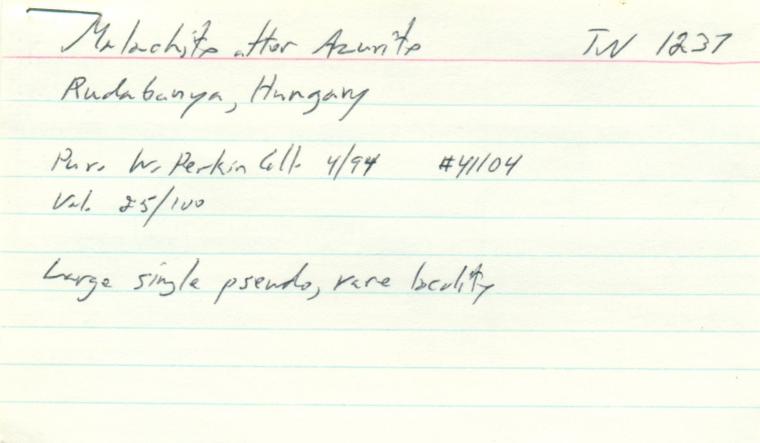 Malachite after Azurite TN 1237
Rudabanya, Hungary
Pur. W. Perkin Coll. 4/94 #41104
Val. 25/100
Large single pseudo, rare locality